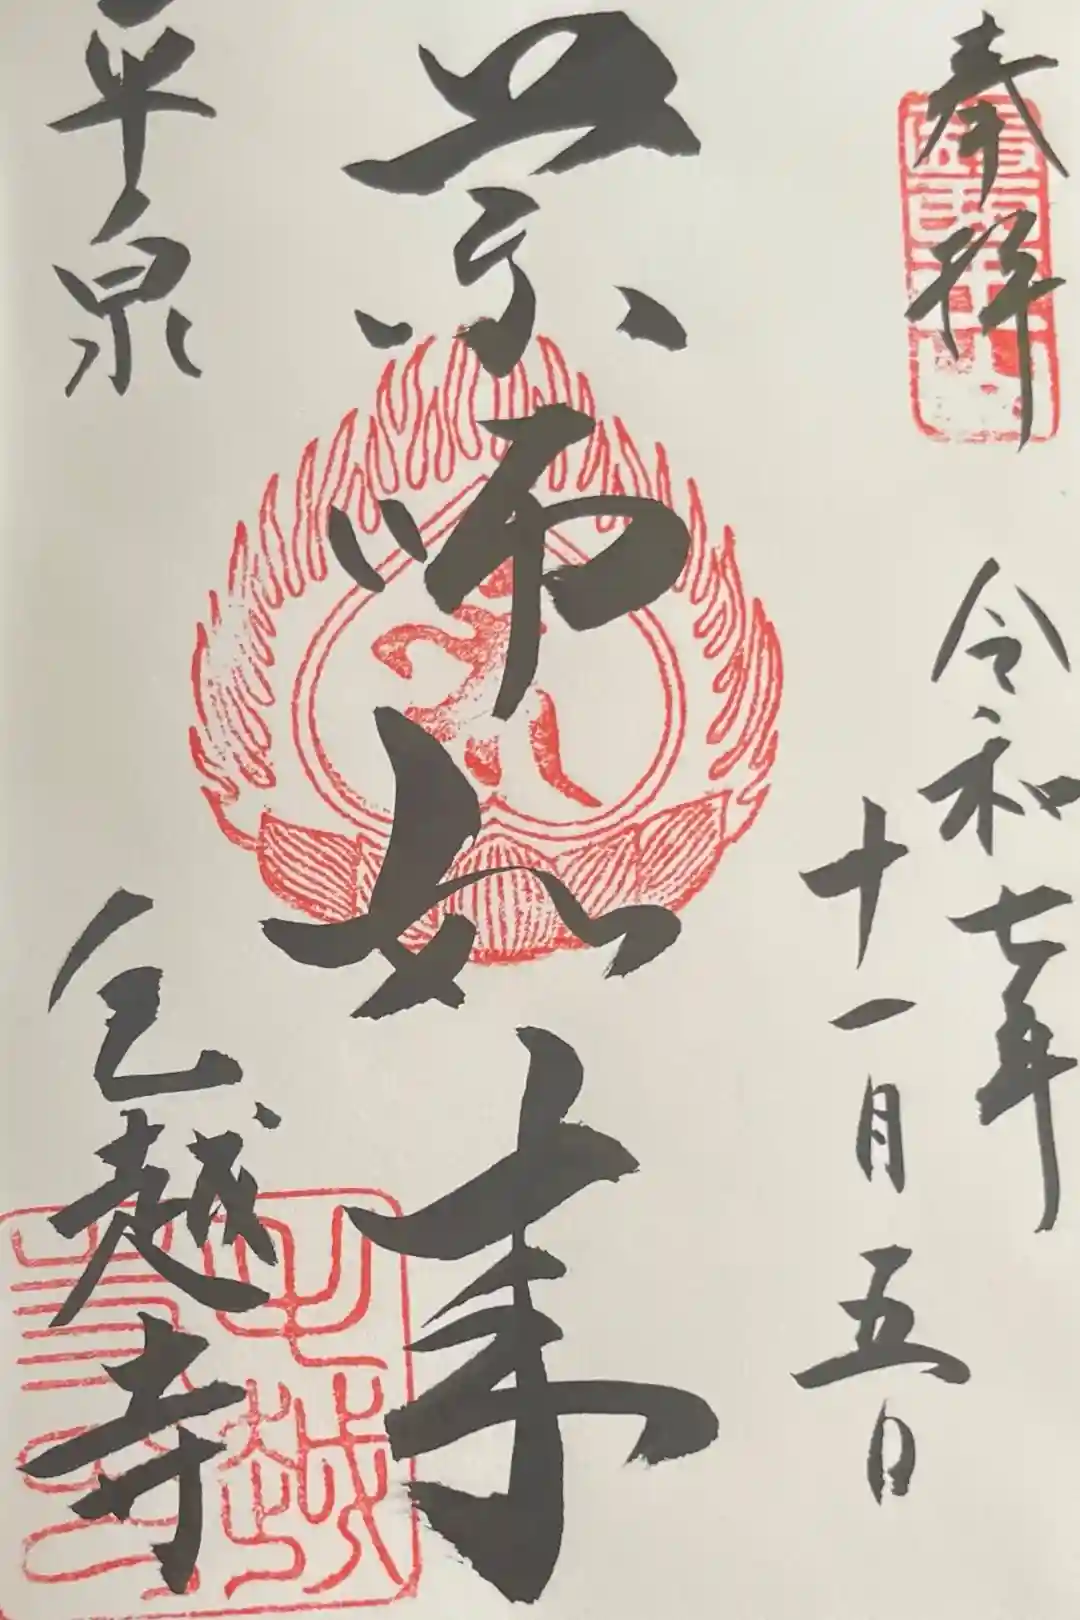 奉拝
令和七年
十一月五日
薬師如来
平泉
毛越寺